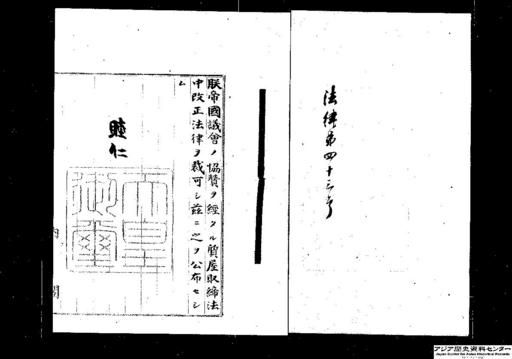 法律第四十三号
朕帝國議會ノ協賛ヲ經タル質屋取締法
中改正法律ヲ裁可シ茲ニ之ヲ公布セシ
ム
睦仁
天皇
御璽
内閣
アジア歴史資料センター
Japan Center for Asian Historical Records